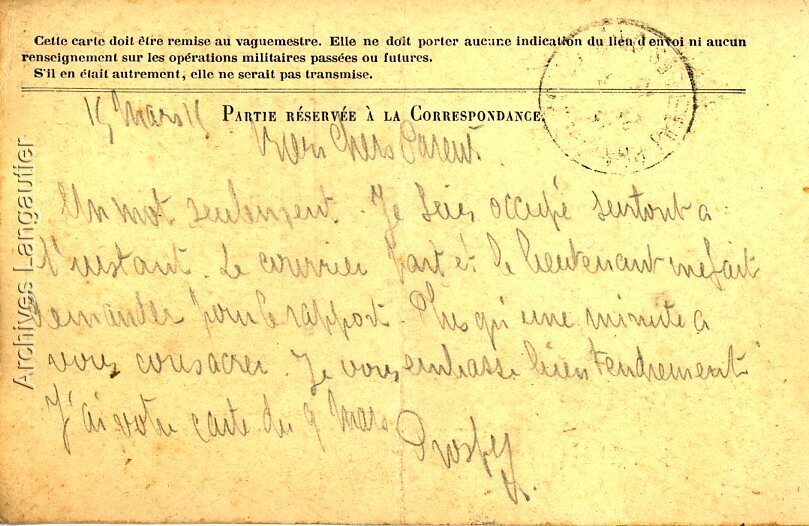 Cette carte doit être remise au vaguemestre. Elle ne doit porter aucune indication du lieu d'envoi ni aucun
renseignement sur les opérations militaires passées ou futures.
S'il en était autrement, elle ne serait pas transmise.
PARTIE RÉSERVÉE À LA CORRESPONDANCE.
15 Mars 15
Bien Chers Parent
Un mot seulement. Je suis occupé surtout a
l'instant. Le courrier part et le lieutenant me fait
demander pour le rapport. Plus qu'une minute a
vous consacrer. Je vous embrasse bien tendrement
J'ai votre carte du 9 Mars
Prosper
Archives Langautier